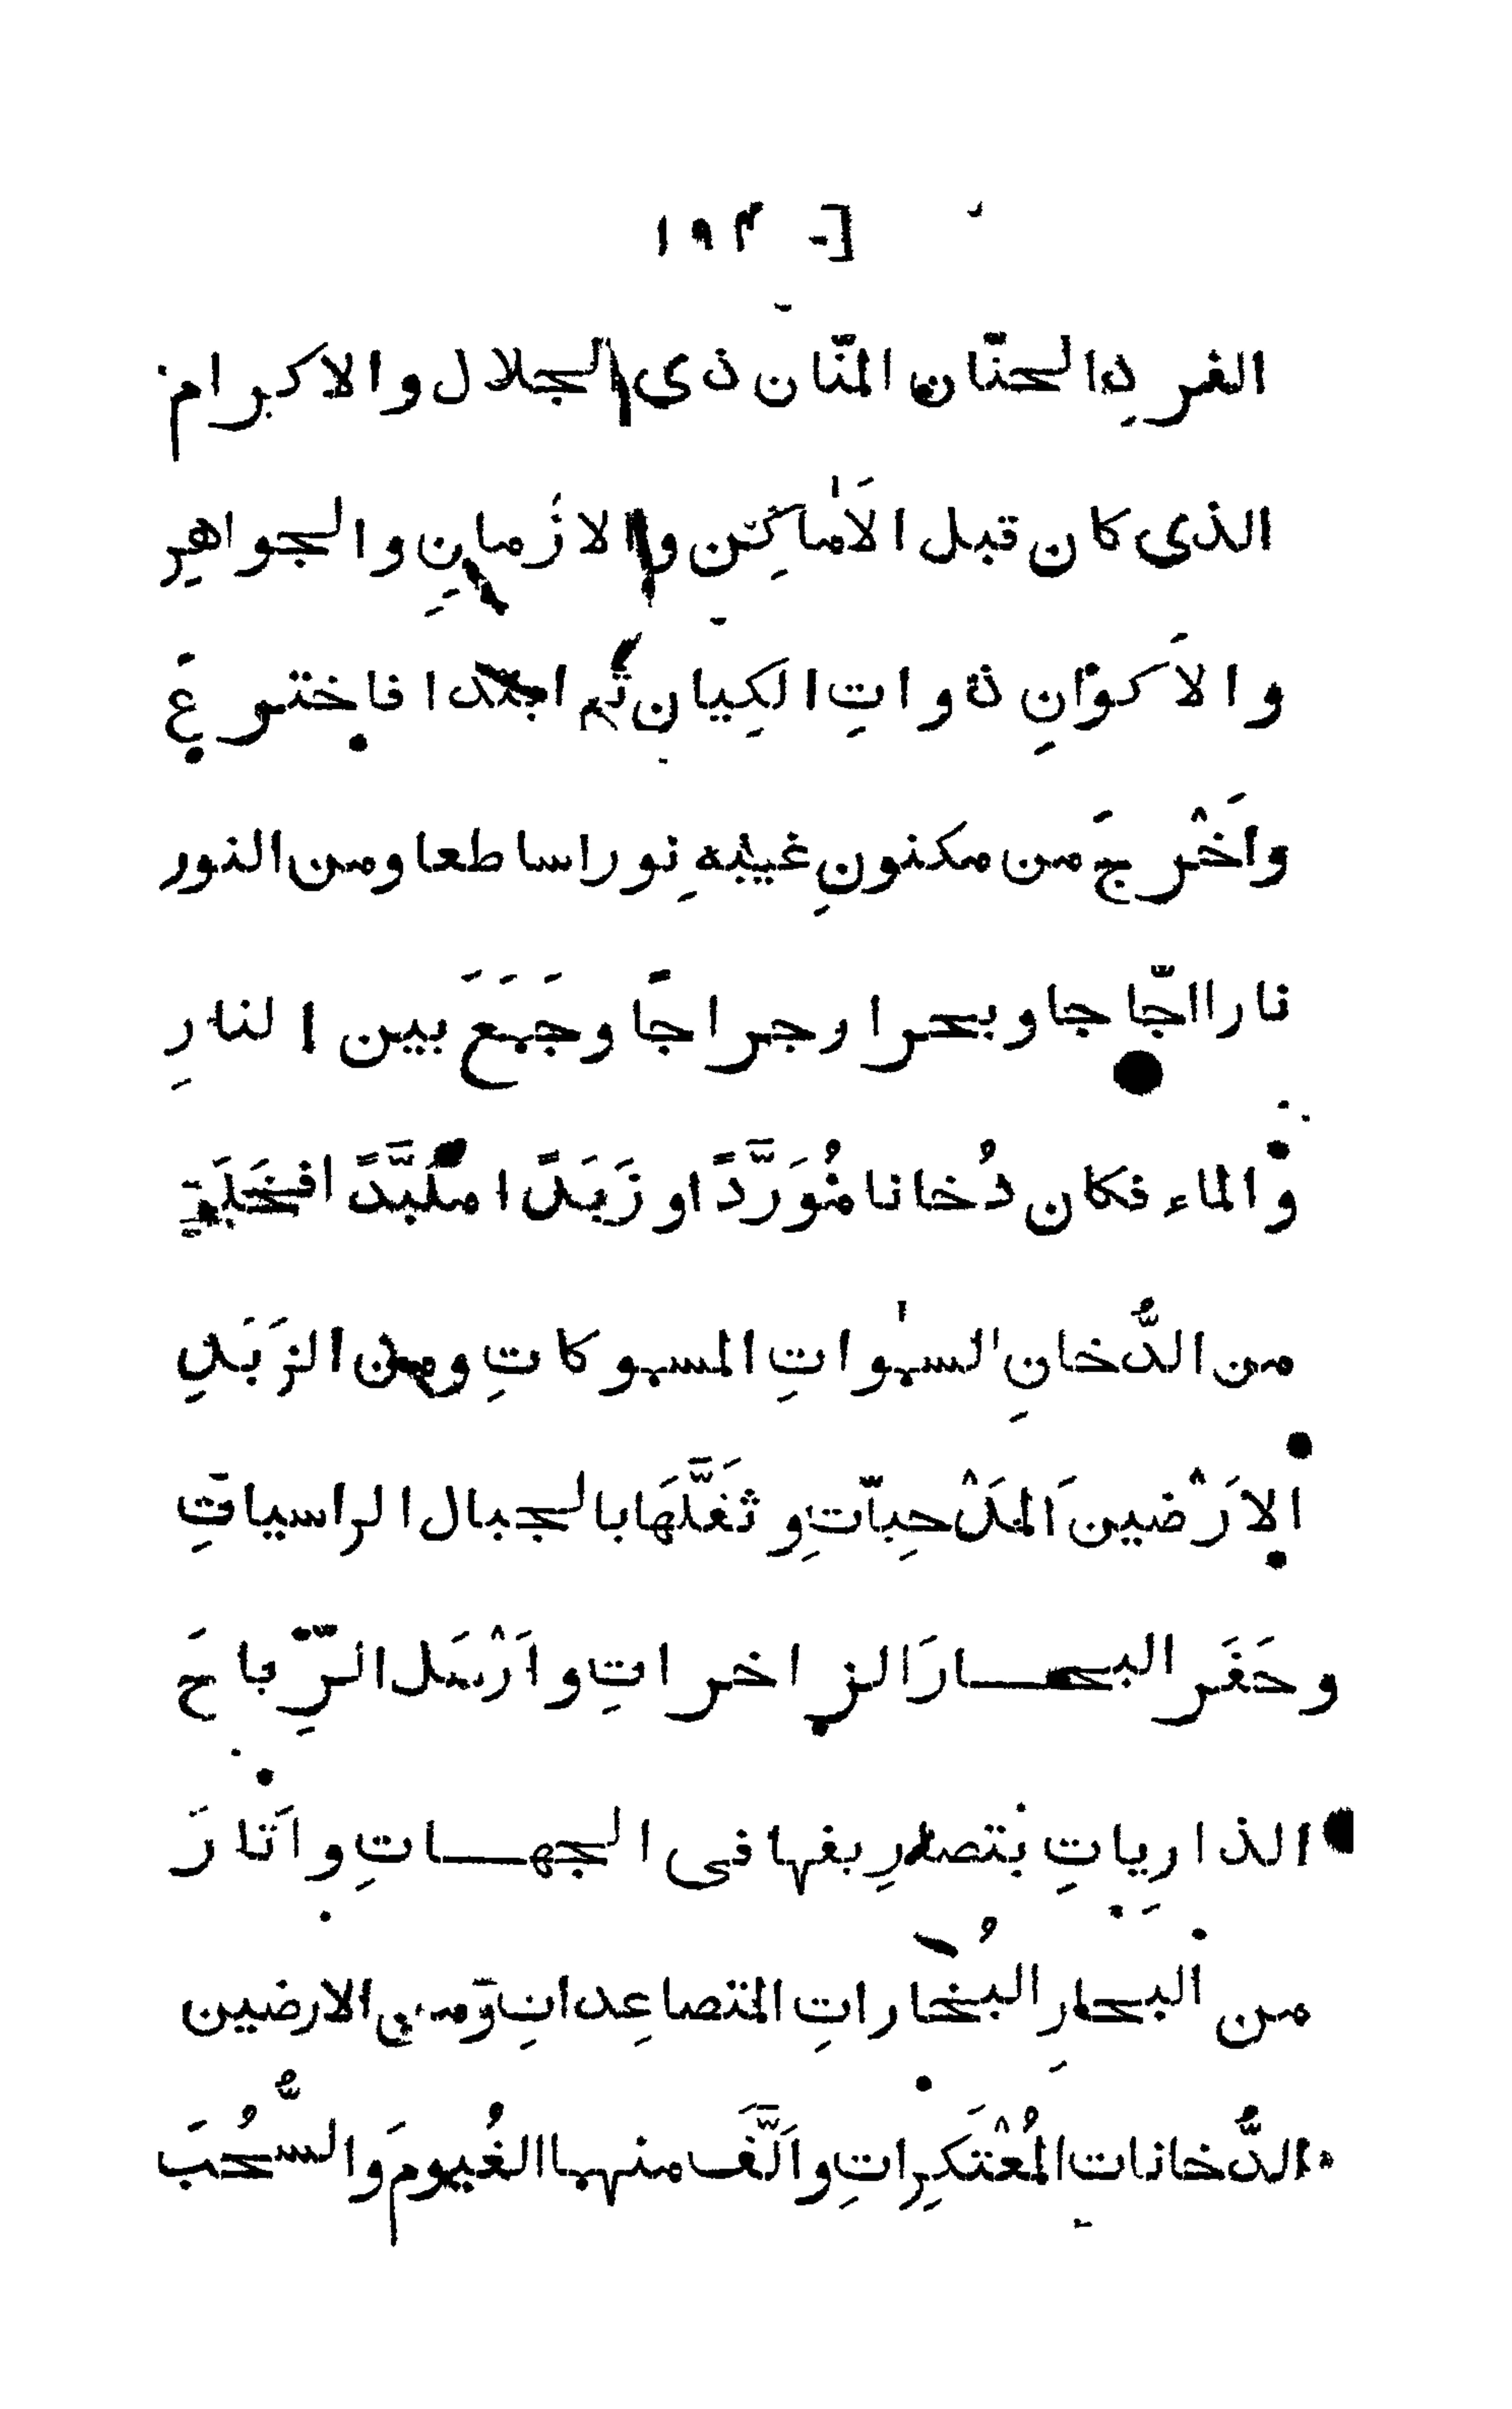 ١٩٣
الفردِ الحنّان المنّان ذى الجلال والاكرام
الذى كان قبل الاَماكِن والازمانِ والجواهِر
والاَكوانِ ذواتِ الكِيان ثم ابتدا فاخترعَ
واَخْرجَ من مكنونِ غيبهِ نورا ساطعا ومن النور
نارا اجّاجا وبحرا رجراجًا وجَمَعَ بين النارِ
والماء فكان دُخانا مُوَرَّدًا و زَبَدًا مُلَبَّدًا فخَلَق
من الدُّخانِ السمٰواتِ المسبوكاتِ ومن الزَبَدِ
الارَْضينَ المَدْحِيّاتِ و ثقَّلَهَا بالجبال الراسياتِ
وحَفَر البحارَ الزاخراتِ واَرْسَل الرِّياحَ
الذارِياتِ بتصارِيفها فى الجهاتِ واَثارَ
من البحارِ البُخاراتِ المتصاعِداتِ ومن الارضين
الدُّخانات المُعْتَكِراتِ واَلَّفَ منها الغُيومَ والسُّحُبَ